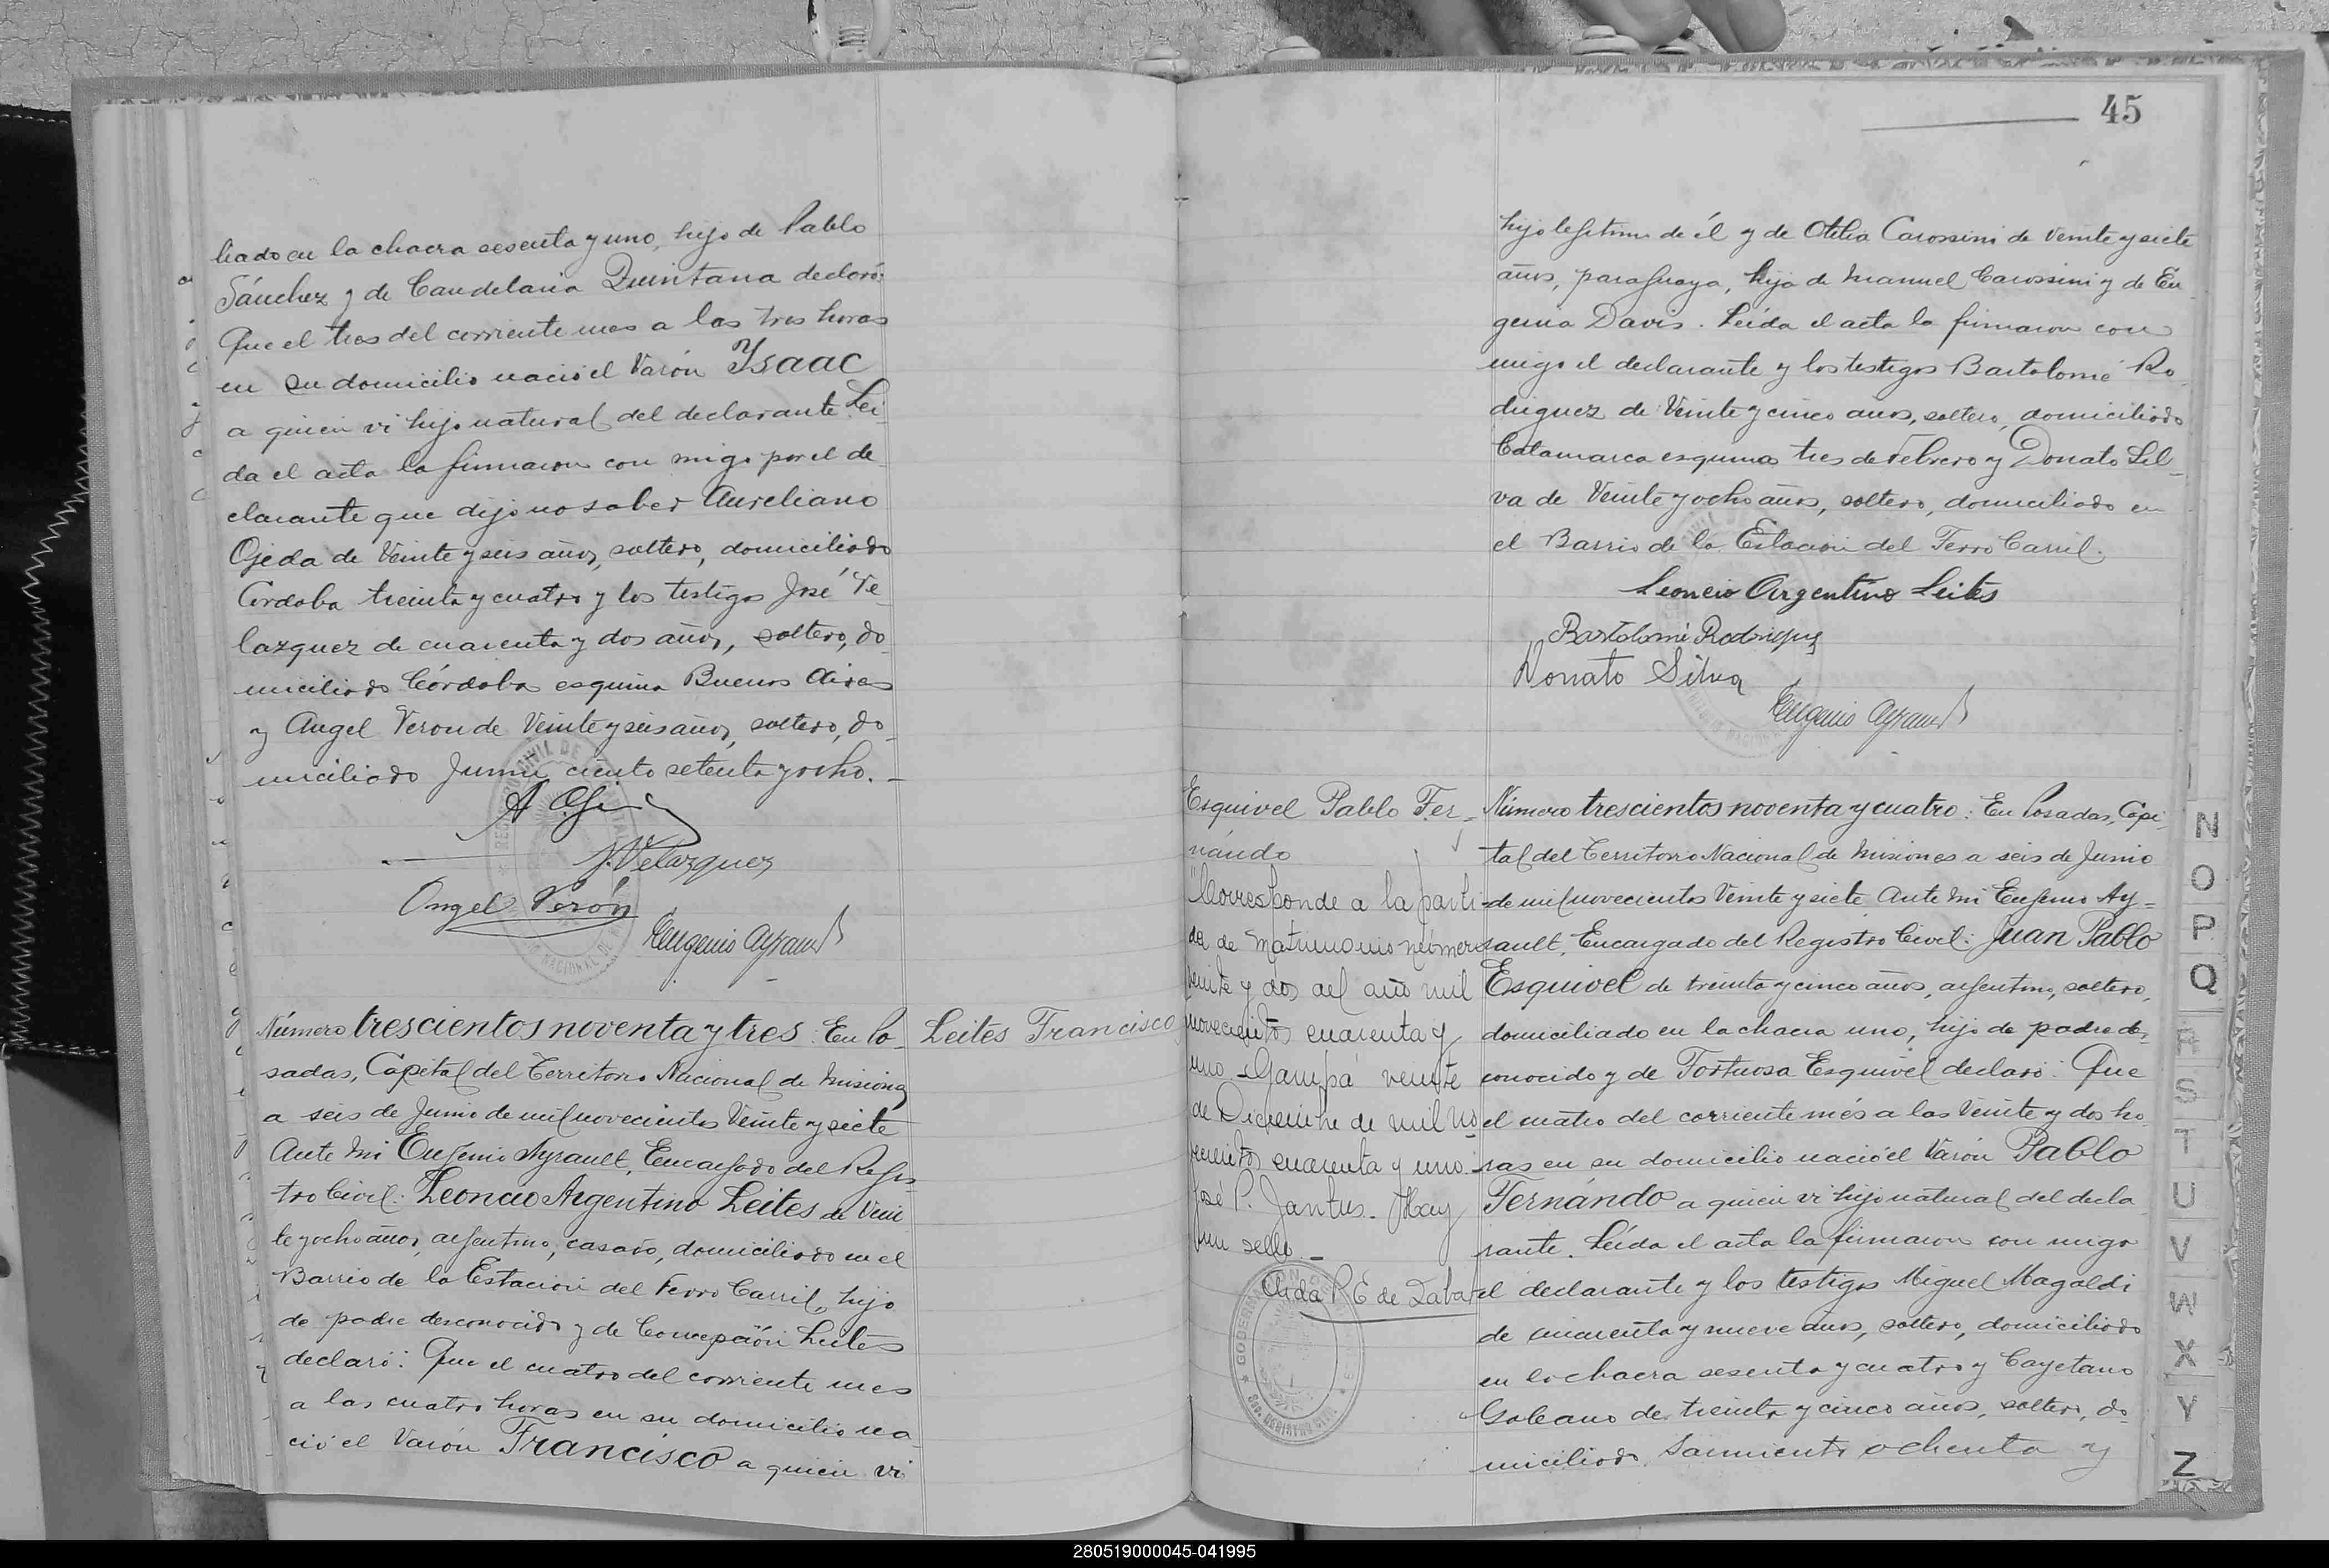 liado en la chacra sesenta y uno, hijo de Pablo
Sánchez y de Candelaria Quintana declaró:
Que el tres del corriente mes a las tres horas
en su domicilio nació el Varón Ysaac
a quien vi hijo natural del declarante. Lei-
da el acta la firmaron con migo por el de-
clarante que dijo no saber Aureliano
Ojeda de Veinte y seis años, soltero, domiciliado
Córdoba treinta y cuatro y los testigos José Ve-
lazquez de cuarenta y dos años, soltero, do-
miciliado Córdoba esquina Buenos Aires
y Angel Veron de Veinte y seis años, soltero, do-
miciliado Junin ciento setenta y ocho. -
J. Velazquez
Angel Verón
Eugenio Ayrault
Número trescientos noventa y tres: En Po-
Leites Francisco
sadas, Capital del Territorio Nacional de Misiones
a seis de Junio de mil novecientos Veinte y siete
Ante Mi Eugenio Ayrault, Encargado del Regis-
tro Civil: Leoncio Argentino Leites de Vein
te y ocho años, argentino, casado, domiciliado en el
Barrio de la Estación del Ferro Carril, hijo
de padre desconocido y de Concepción Leites
declaró: Que el cuatro del corriente mes
a las cuatro horas en su domicilio na-
ció el Varón Francisco a quien vi
45
hijo legitimo de él y de Otilia Carossini de Veinte y siete
años, paraguaya, hija de Manuel Carossini y de Eu
genia Davis. Leída el acta la firmaron con
migo el declarante y los testigos Bartolomé Ro
driguez de Veinte y cinco años, soltero, domiciliado
Catamarca esquina tres de Febrero y Donato Sil-
va de Veinte y ocho años, soltero, domiciliado en
el Barrio de la Estación del Ferro Carril.
Leoncio Argentino Leites
Bartolomé Rodriguez
Donato Silva
Eugenio Ayrault
Esquivel Pablo Fer-
nándo
"Corresponde a la parti-
da de matrimonio número
veinte y dos del año mil
novecientos cuarenta y
uno - Garupá veinte
de Diciembre de mil no
vecientos cuarenta y uno.
José P. Jantus. Hay
un sello. -
Aida R E de Zabal
Número trescientos noventa y cuatro: En Posadas, Capi-
tal del Territorio Nacional de Misiones a seis de Junio
de mil novecientos Veinte y siete Ante Mi Eugenio Ay-
rault, Encargado del Registro Civil: Juan Pablo
Esquivel de treinta y cinco años, argentino, soltero,
domiciliado en la chacra uno, hijo de padre des
conocido y de Tortuosa Esquivel declaró: Que
el cuatro del corriente més a las Veinte y dos ho-
ras en su domicilio nació el Varón Pablo
Fernándo a quien vi hijo natural del decla
rante. Leída el acta la firmaron con migo
el declarante y los testigos Miguel Magaldi
de cuarenta y nueve años, soltero, domiciliado
en la chacra sesenta y cuatro y Cayetano
Galeano de treinta y cinco años, soltero, do-
miciliado, Sarmiento ochenta y
N
O
P
Q
R
S
T
U
V
W
X
Y
Z
280519000045-041995